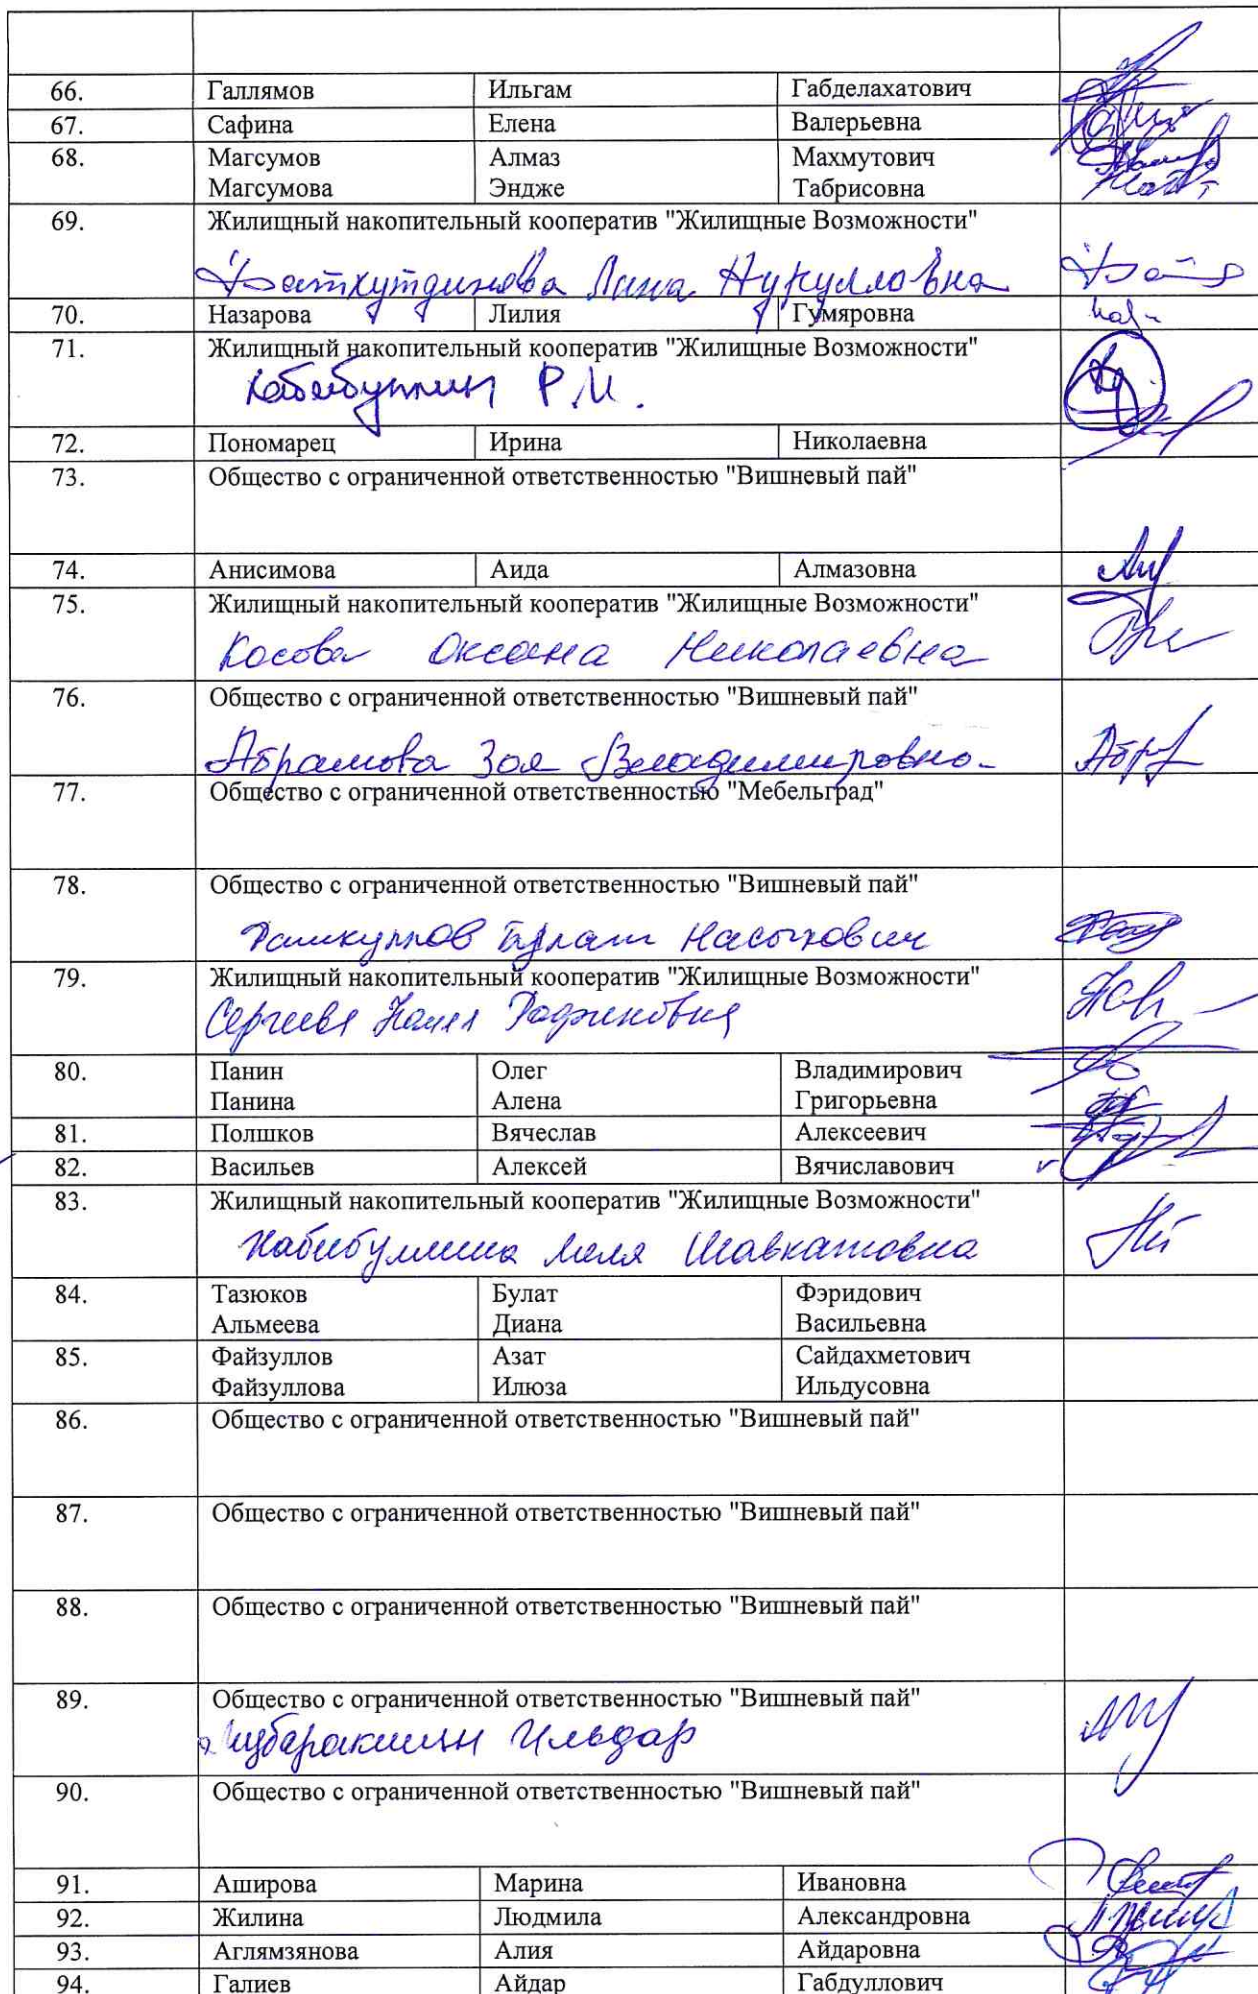 66. Галлямов Ильгам Габделахатович
67. Сафина Елена Валерьевна
68. Магсумов Алмаз Махмутович
Магсумова Эндже Табрисовна
69. Жилищный накопительный кооператив "Жилищные Возможности"
Фатхутдинова Лина Нурулловна
70. Назарова Лилия Гумяровна
71. Жилищный накопительный кооператив "Жилищные Возможности"
Хабибуллин Р.И.
72. Пономарец Ирина Николаевна
73. Общество с ограниченной ответственностью "Вишневый пай"
74. Анисимова Аида Алмазовна
75. Жилищный накопительный кооператив "Жилищные Возможности"
Косова Оксана Николаевна
76. Общество с ограниченной ответственностью "Вишневый пай"
Абрамова Зоя Владимировна
77. Общество с ограниченной ответственностью "Мебельград"
78. Общество с ограниченной ответственностью "Вишневый пай"
Рашкуллов Булат Насыхович
79. Жилищный накопительный кооператив "Жилищные Возможности"
Сергеева Наиля Рафиковна
80. Панин Олег Владимирович
Панина Алена Григорьевна
81. Полшков Вячеслав Алексеевич
82. Васильев Алексей Вячиславович
83. Жилищный накопительный кооператив "Жилищные Возможности"
Хабибуллина Лиля Шавкатовна
84. Тазюков Булат Фэридович
Альмеева Диана Васильевна
85. Файзуллов Азат Сайдахметович
Файзуллова Илюза Ильдусовна
86. Общество с ограниченной ответственностью "Вишневый пай"
87. Общество с ограниченной ответственностью "Вишневый пай"
88. Общество с ограниченной ответственностью "Вишневый пай"
89. Общество с ограниченной ответственностью "Вишневый пай"
Мубаракшин Ильдар
90. Общество с ограниченной ответственностью "Вишневый пай"
91. Аширова Марина Ивановна
92. Жилина Людмила Александровна
93. Аглямзянова Алия Айдаровна
94. Галиев Айдар Габдуллович